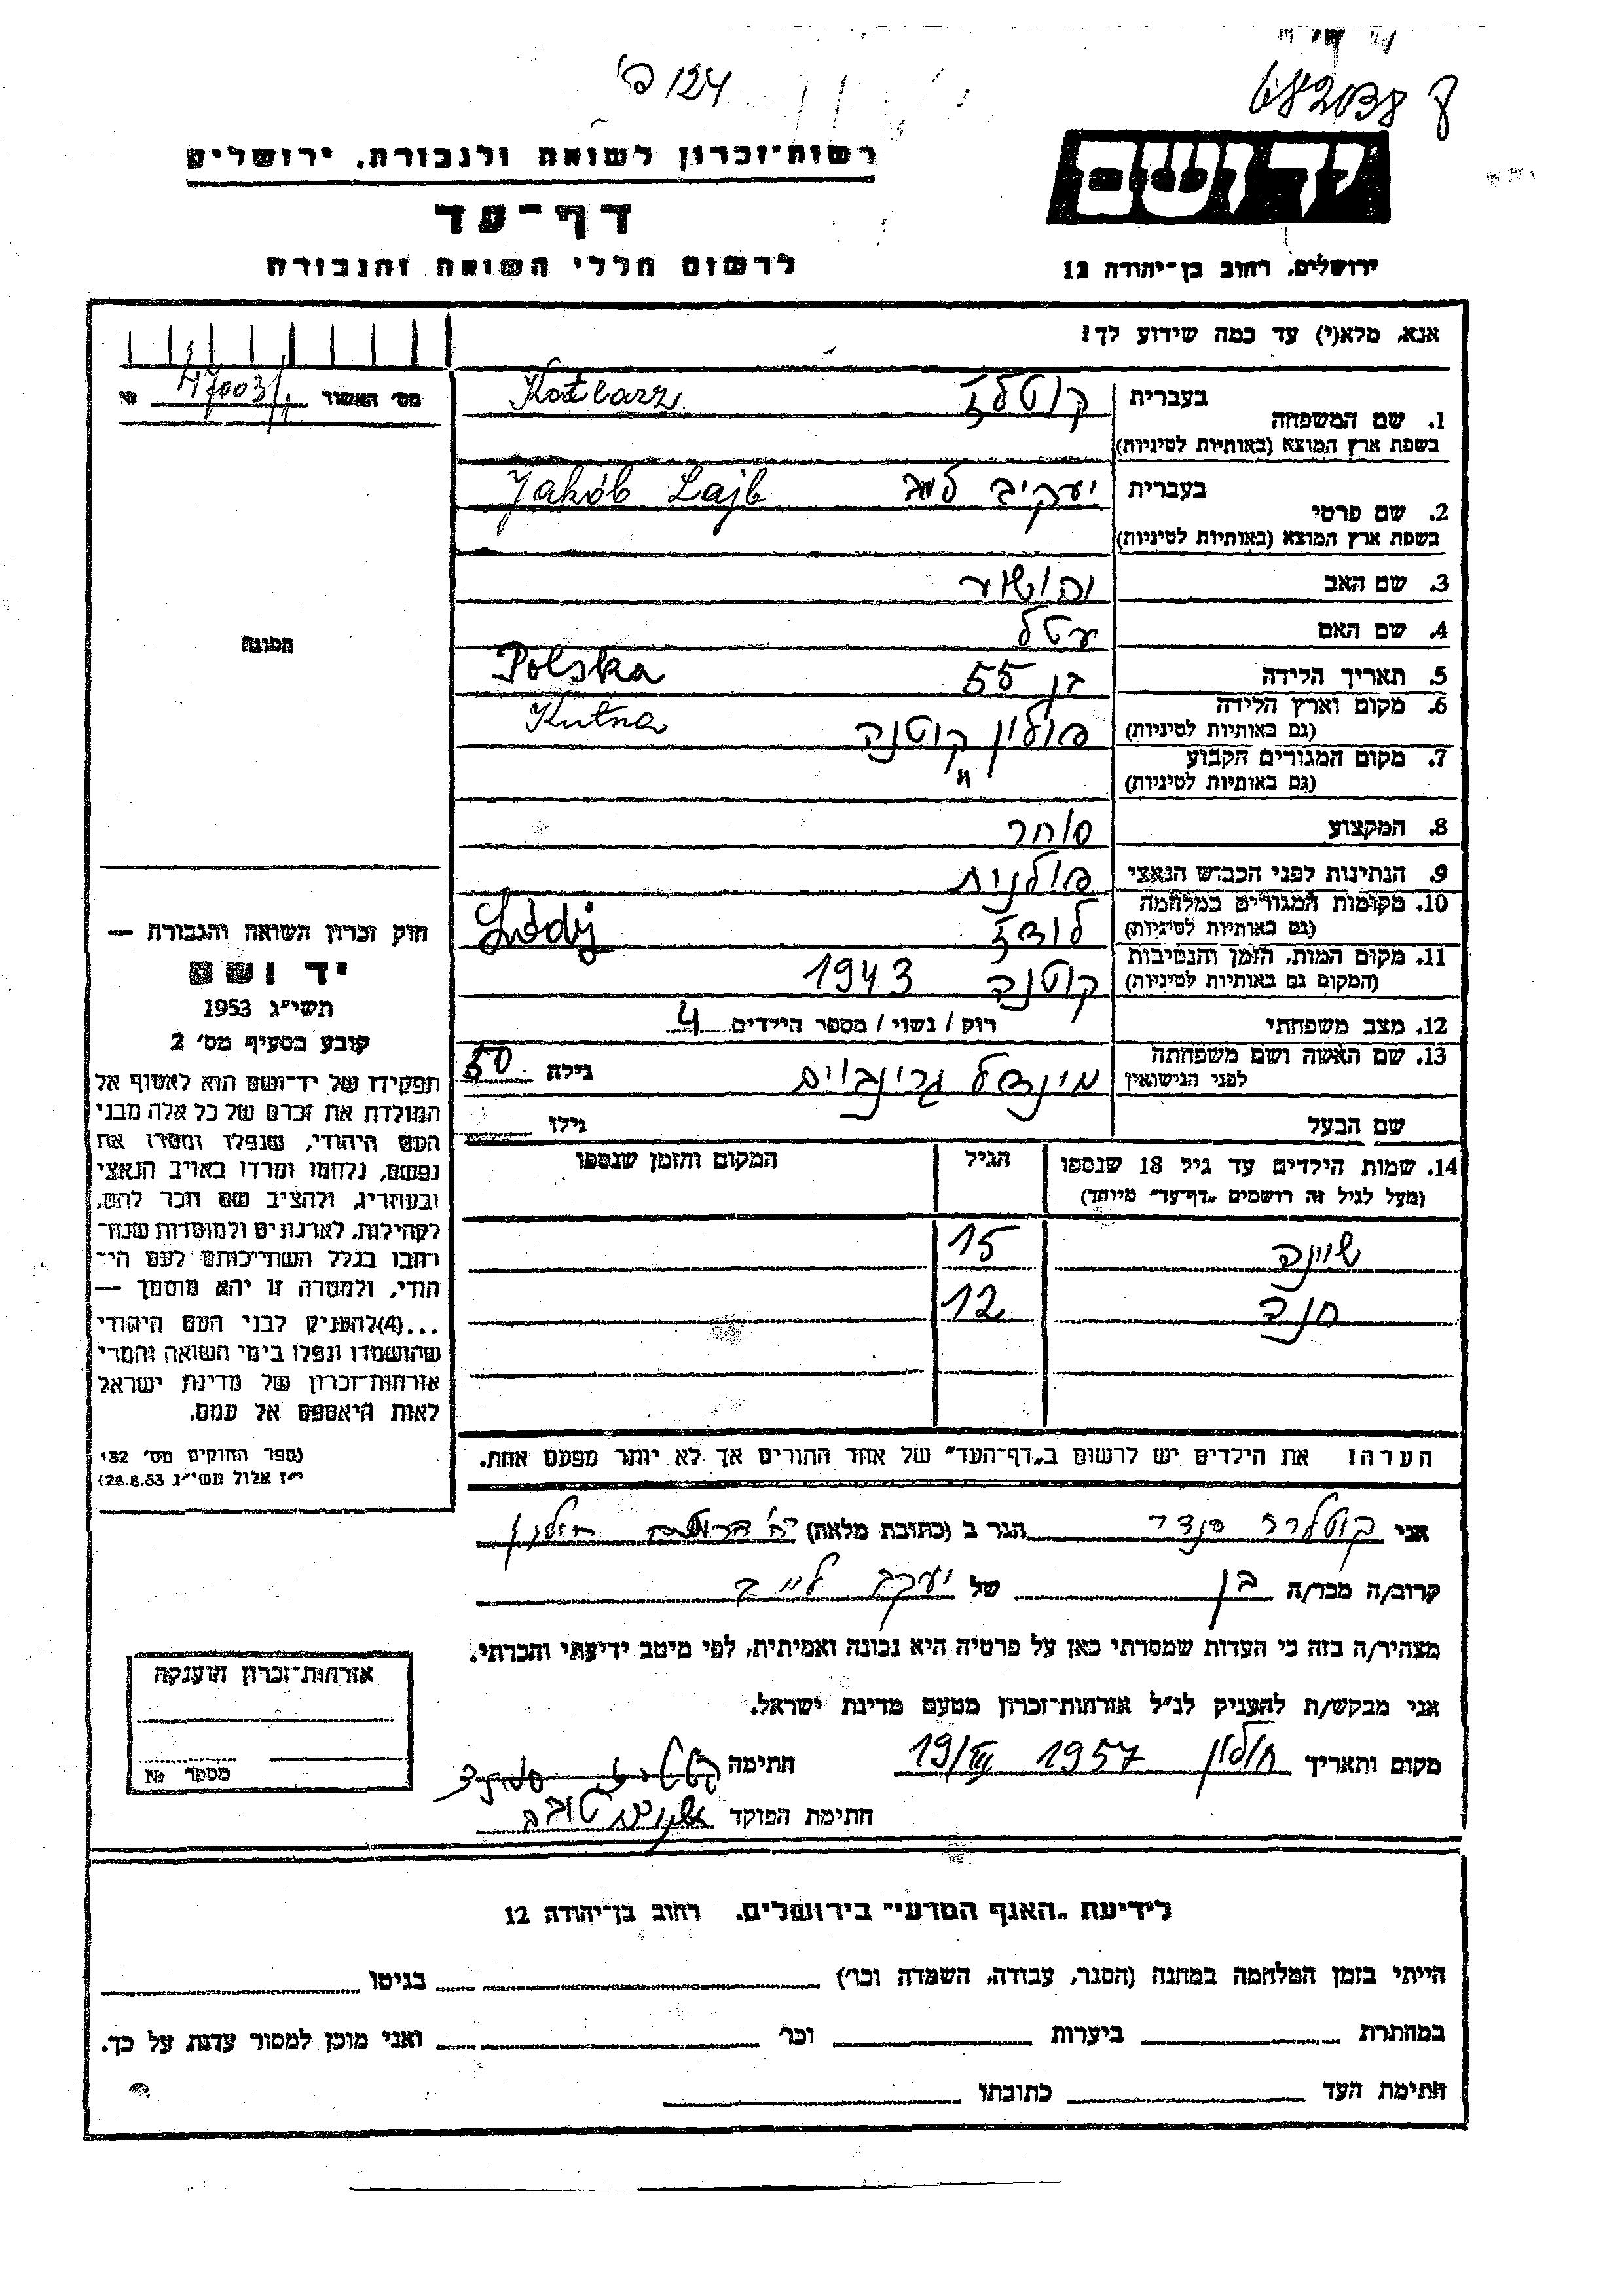 פ' 124
682038 ק
יד ושם
רשות-זכרון לשואה ולגבורה, ירושלים
דף-עד
לרשום חללי השואה והגבורה
ירושלים, רחוב בן-יהודה 12
אנא, מלא(י) עד כמה שידוע לך!
מס' האשור № 47003/1
1. שם המשפחה
בעברית Kotlarz
בשפת ארץ המוצא (באותיות לטיניות)
2. שם פרטי
בעברית יעקב Jakób Lajb
בשפת ארץ המוצא (באותיות לטיניות)
3. שם האב
4. שם האם
5. תאריך הלידה בן 55 Polska
6. מקום וארץ הלידה
(גם באותיות לטיניות) פולין קוטנה Kutna
7. מקום המגורים הקבוע "
(גם באותיות לטיניות)
8. המקצוע סוחר
9. הנתינות לפני הכבוש הנאצי פולנית
10. מקומות המגורים במלחמה
(גם באותיות לטיניות) לודז Łódź
11. מקום המות, הזמן והנסיבות
(המקום גם באותיות לטיניות) קוטנה 1943
12. מצב משפחתי רוק / נשוי / מספר הילדים 4
13. שם האשה ושם משפחתה
לפני הנישואין גילה 50
שם הבעל גילו
14. שמות הילדים עד גיל 18 שנספו
(מעל לגיל זה רושמים "דף-עד" מיוחד)
הגיל
המקום והזמן שנספו
שיינה 15
חנה 12
הערה! את הילדים יש לרשום ב"דף-העד" של אחד ההורים אך לא יותר מפעם אחת.
תמונה
חוק זכרון השואה והגבורה —
יד ושם
תשי"ג 1953
קובע בסעיף מס' 2
תפקידו של יד-ושם הוא לאסוף אל
המולדת את זכרם של כל אלה מבני
העם היהודי, שנפלו ומסרו את
נפשם, נלחמו ומרדו באויב הנאצי
ובעוזריו, ולהציב שם וזכר להם,
לקהילות, לארגונים ולמוסדות שנח-
רבו בגלל השתייכותם לעם הי-
הודי, ולמטרה זו יהא מוסמך —
...(4)להעניק לבני העם היהודי
שהושמדו ונפלו בימי השואה והמרי
אזרחות-זכרון של מדינת ישראל
לאות היאספם אל עמם.
(ספר החוקים מס' 132
י"ז אלול תשי"ג 28.8.53)
אני קוטלרז הגר ב (כתובת מלאה) חולון
קרוב/ה מכר/ה בן של יעקב לייב
מצהיר/ה בזה כי העדות שמסרתי כאן על פרטיה היא נכונה ואמיתית, לפי מיטב ידיעתי והכרתי.
אני מבקש/ת להעניק לנ"ל אזרחות-זכרון מטעם מדינת ישראל.
מקום ותאריך חולון 1957 חתימה
חתימת הפוקד
אזרחות-זכרון הוענקה
מספר №
לידיעת "האגף המדעי" בירושלים, רחוב בן-יהודה 12
הייתי בזמן המלחמה במחנה (הסגר, עבודה, השמדה וכו') בגיטו
במחתרת ביערות וכו' ואני מוכן למסור עדות על כך.
חתימת העד כתובתו